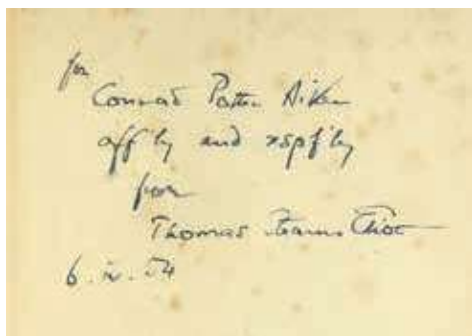 for
Conrad Potter Aiken
aff'ly and rspf'ly
from
Thomas Stearns Eliot
6. iv. 54